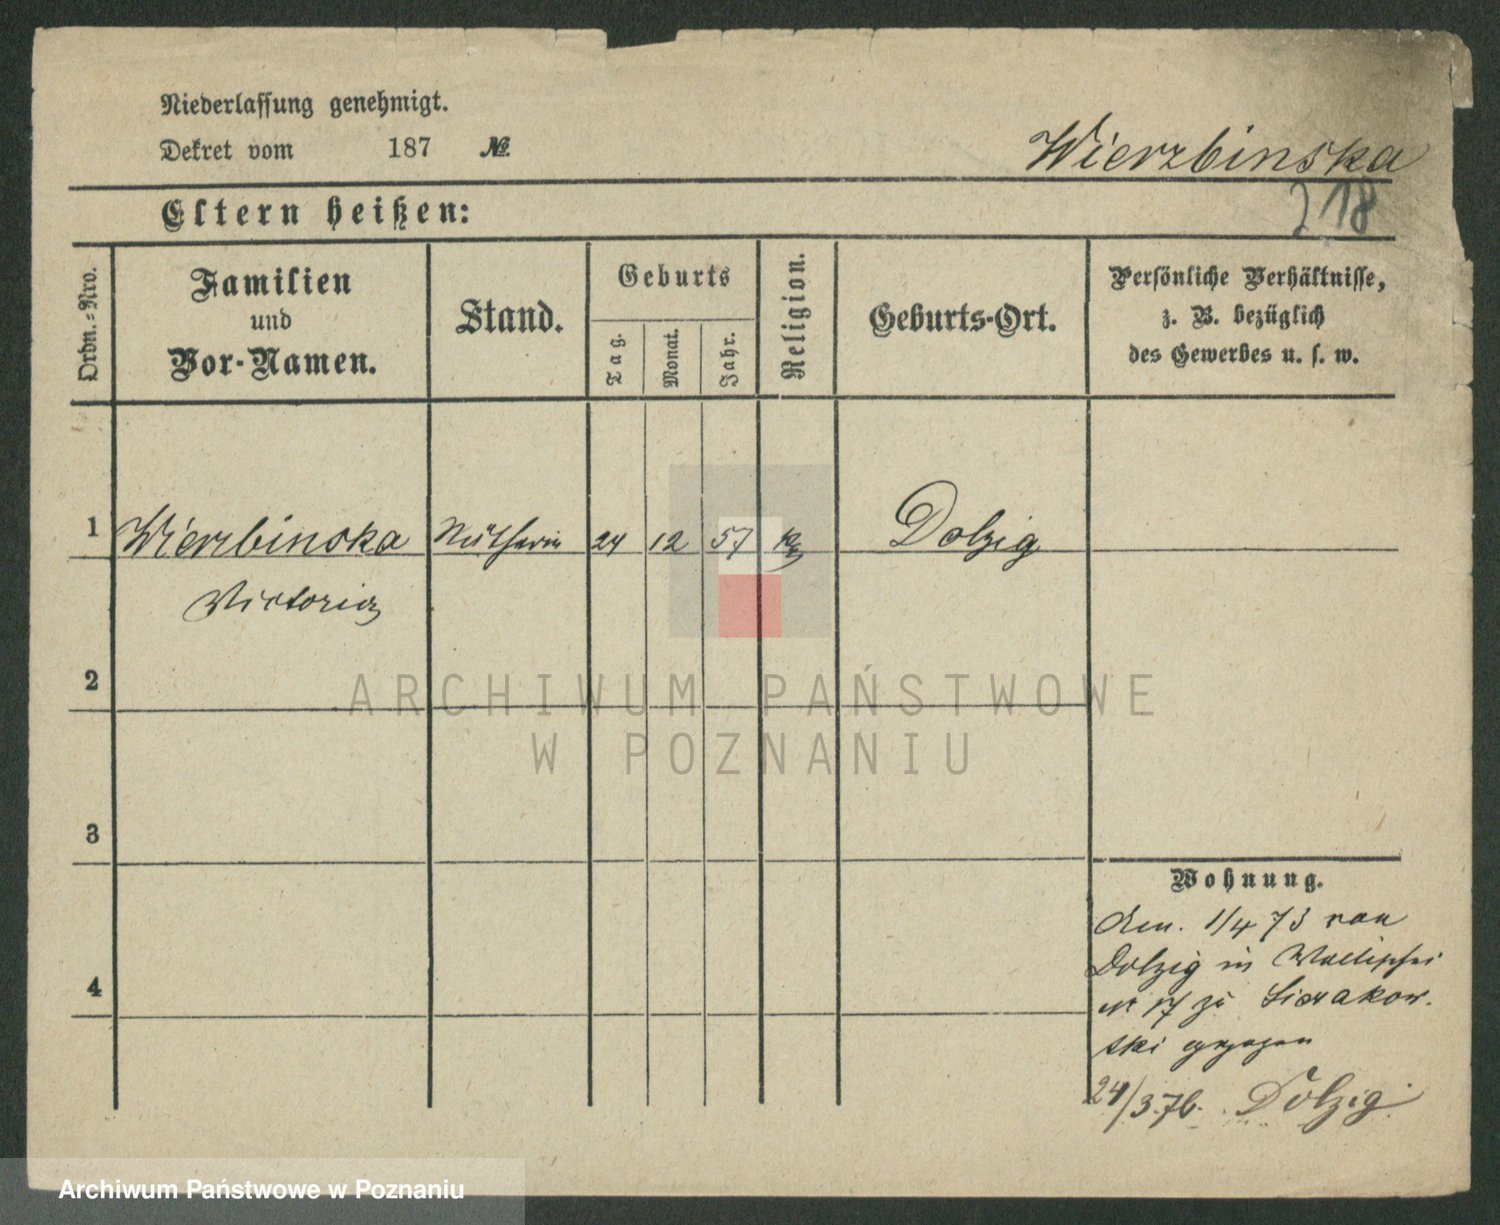 Niederlassung genehmigt.
Dekret vom 187 №.
Wierzbinska
218
Eltern heißen:
Ordn.-Nro.
Familien
und
Vor-Namen.
Stand.
Geburts
Tag.
Monat.
Jahr.
Religion.
Geburts-Ort.
Persönliche Verhältnisse,
z. B. bezüglich
des Gewerbes u. s. w.
1 Wierzbinska Nätherin 24 12 57 k Dolzig
Victoria
2
3
4
Wohnung.
1/4 73 von
Dolzig in
№ 17 zu Sierakow-
ski gezogen
24/3.76. Dolzig
ARCHIWUM PAŃSTWOWE
W POZNANIU
Archiwum Państwowe w Poznaniu